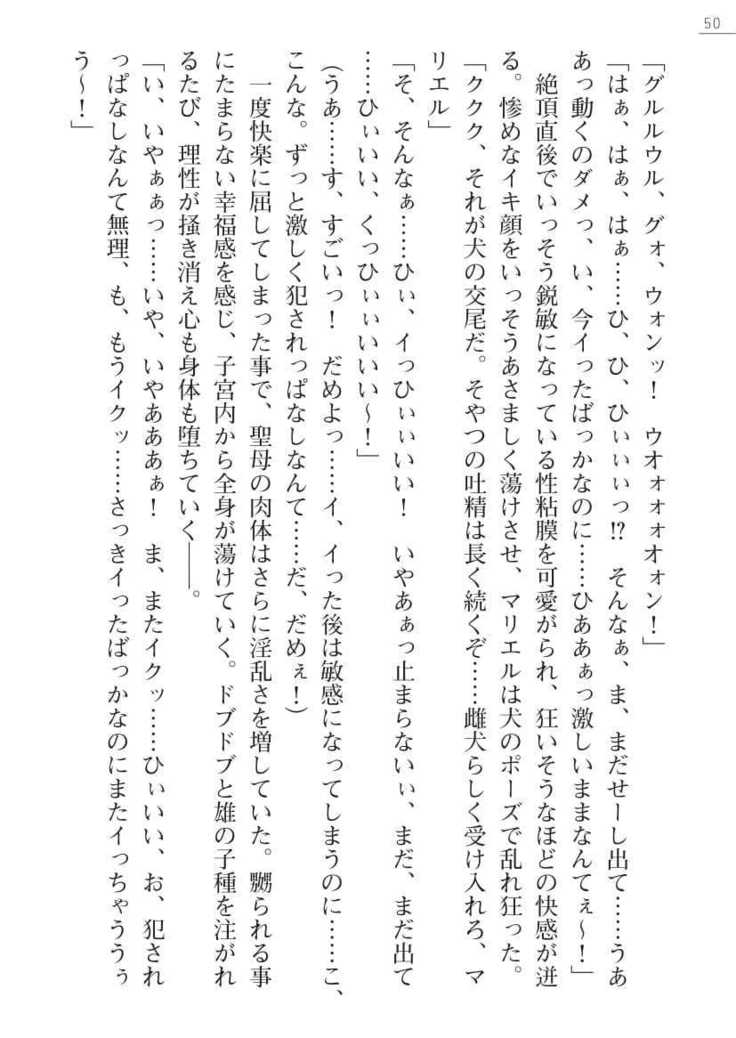 50
「グルルウル、グォ、ウォンッ！　ウオォォォオォン！」
「はぁ、はぁ、はぁ……ひ、ひ、ひぃぃぃっ!?　そんなぁ、ま、まだせーし出て……うあ
あっ動くのダメっ、い、今イったばっかなのに……ひああぁっ激しいままなんてぇ～！」
　絶頂直後でいっそう鋭敏になっている性粘膜を可愛がられ、狂いそうなほどの快感が迸
る。惨めなイキ顔をいっそうあさましく蕩けさせ、マリエルは犬のポーズで乱れ狂った。
「ククク、それが犬の交尾だ。そやつの吐精は長く続くぞ……雌犬らしく受け入れろ、マ
リエル」
「そ、そんなぁ……ひぃ、イっひぃぃいい！　いやあぁっ止まらないぃ、まだ、まだ出て
……ひぃいい、くっひぃぃいいい～！」
(うあ……す、すごいっ！　だめよっ……イ、イった後は敏感になってしまうのに……こ、
こんな。ずっと激しく犯されっぱなしなんて……だ、だめぇ！)
　一度快楽に屈してしまった事で、聖母の肉体はさらに淫乱さを増していた。嬲られる事
にたまらない幸福感を感じ、子宮内から全身が蕩けていく。ドブドブと雄の子種を注がれ
るたび、理性が掻き消え心も身体も堕ちていく――。
「い、いやぁぁっ……いや、いやあああぁ！　ま、またイクッ……ひぃいい、お、犯され
っぱなしなんて無理、も、もうイクッ……さっきイったばっかなのにまたイっちゃううぅ
う～！」